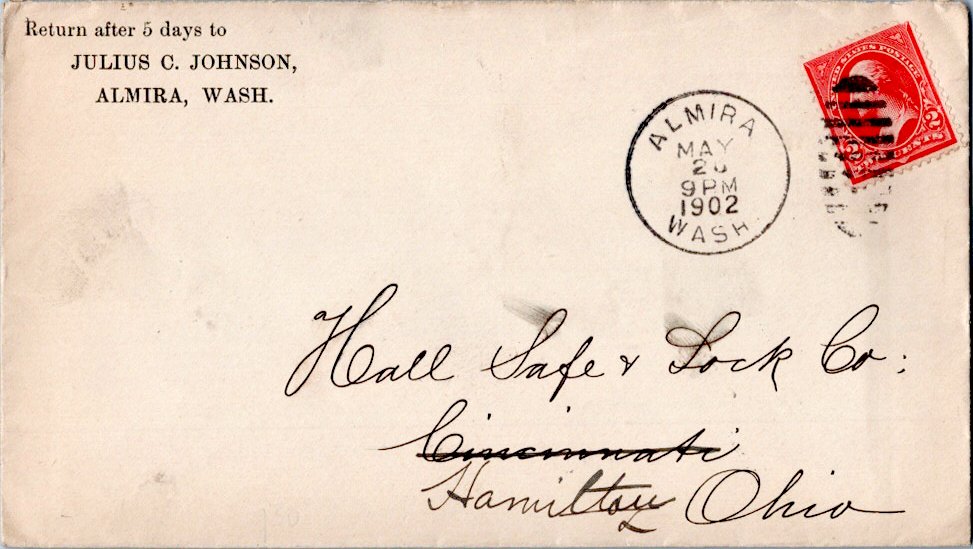 Return after 5 days to
JULIUS C. JOHNSON,
ALMIRA, WASH.
UNITED STATES POSTAGE
2 2
CENTS
ALMIRA
MAY
9 PM
1902
WASH
Hall Safe & Lock Co:
Cincinnati
Hamilton Ohio